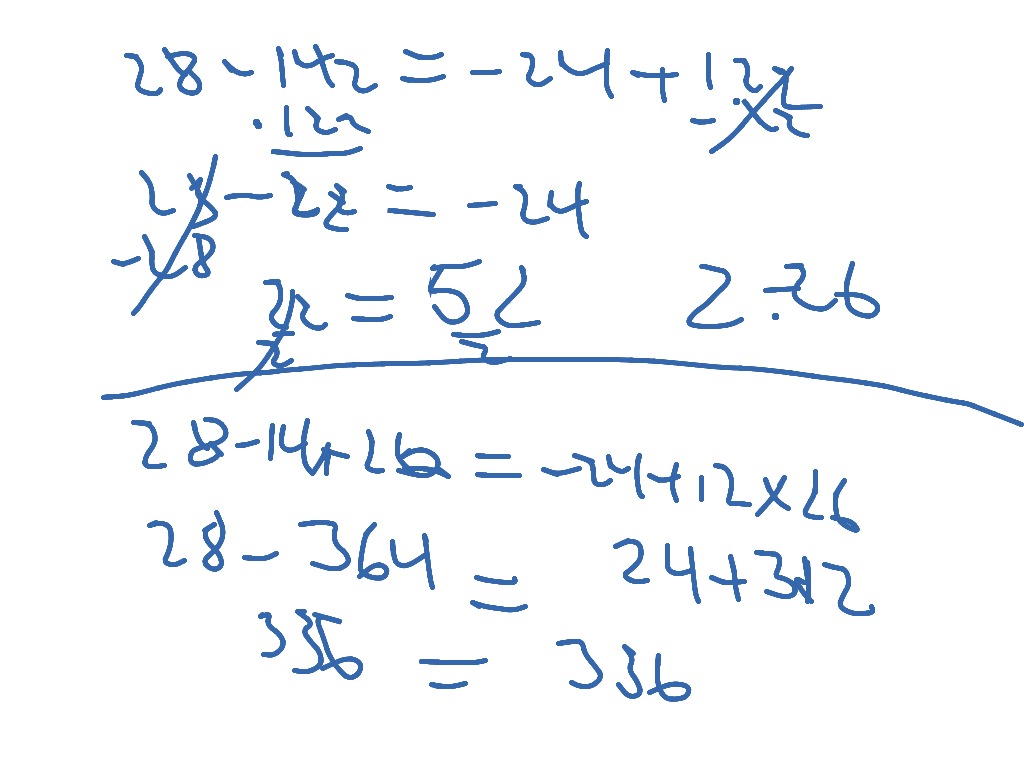 28 - 14z = -24 + 12z
-12z - 12z
28 - 2z = -24
-28
2z = 52 z = 26
2 2
28 - 14 × 26 = -24 + 12 × 26
28 - 364 = 24 + 312
336 = 336